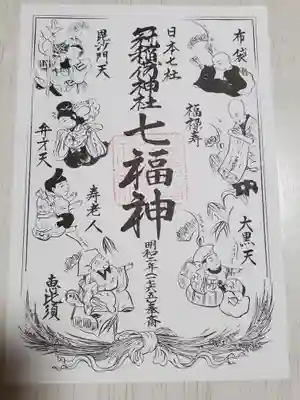 布袋
日本七社
冠稲荷神社
毘沙門天
福禄寿
七福神
弁才天
大黒天
寿老人
明和二年(一七六五)奉斎
恵比須